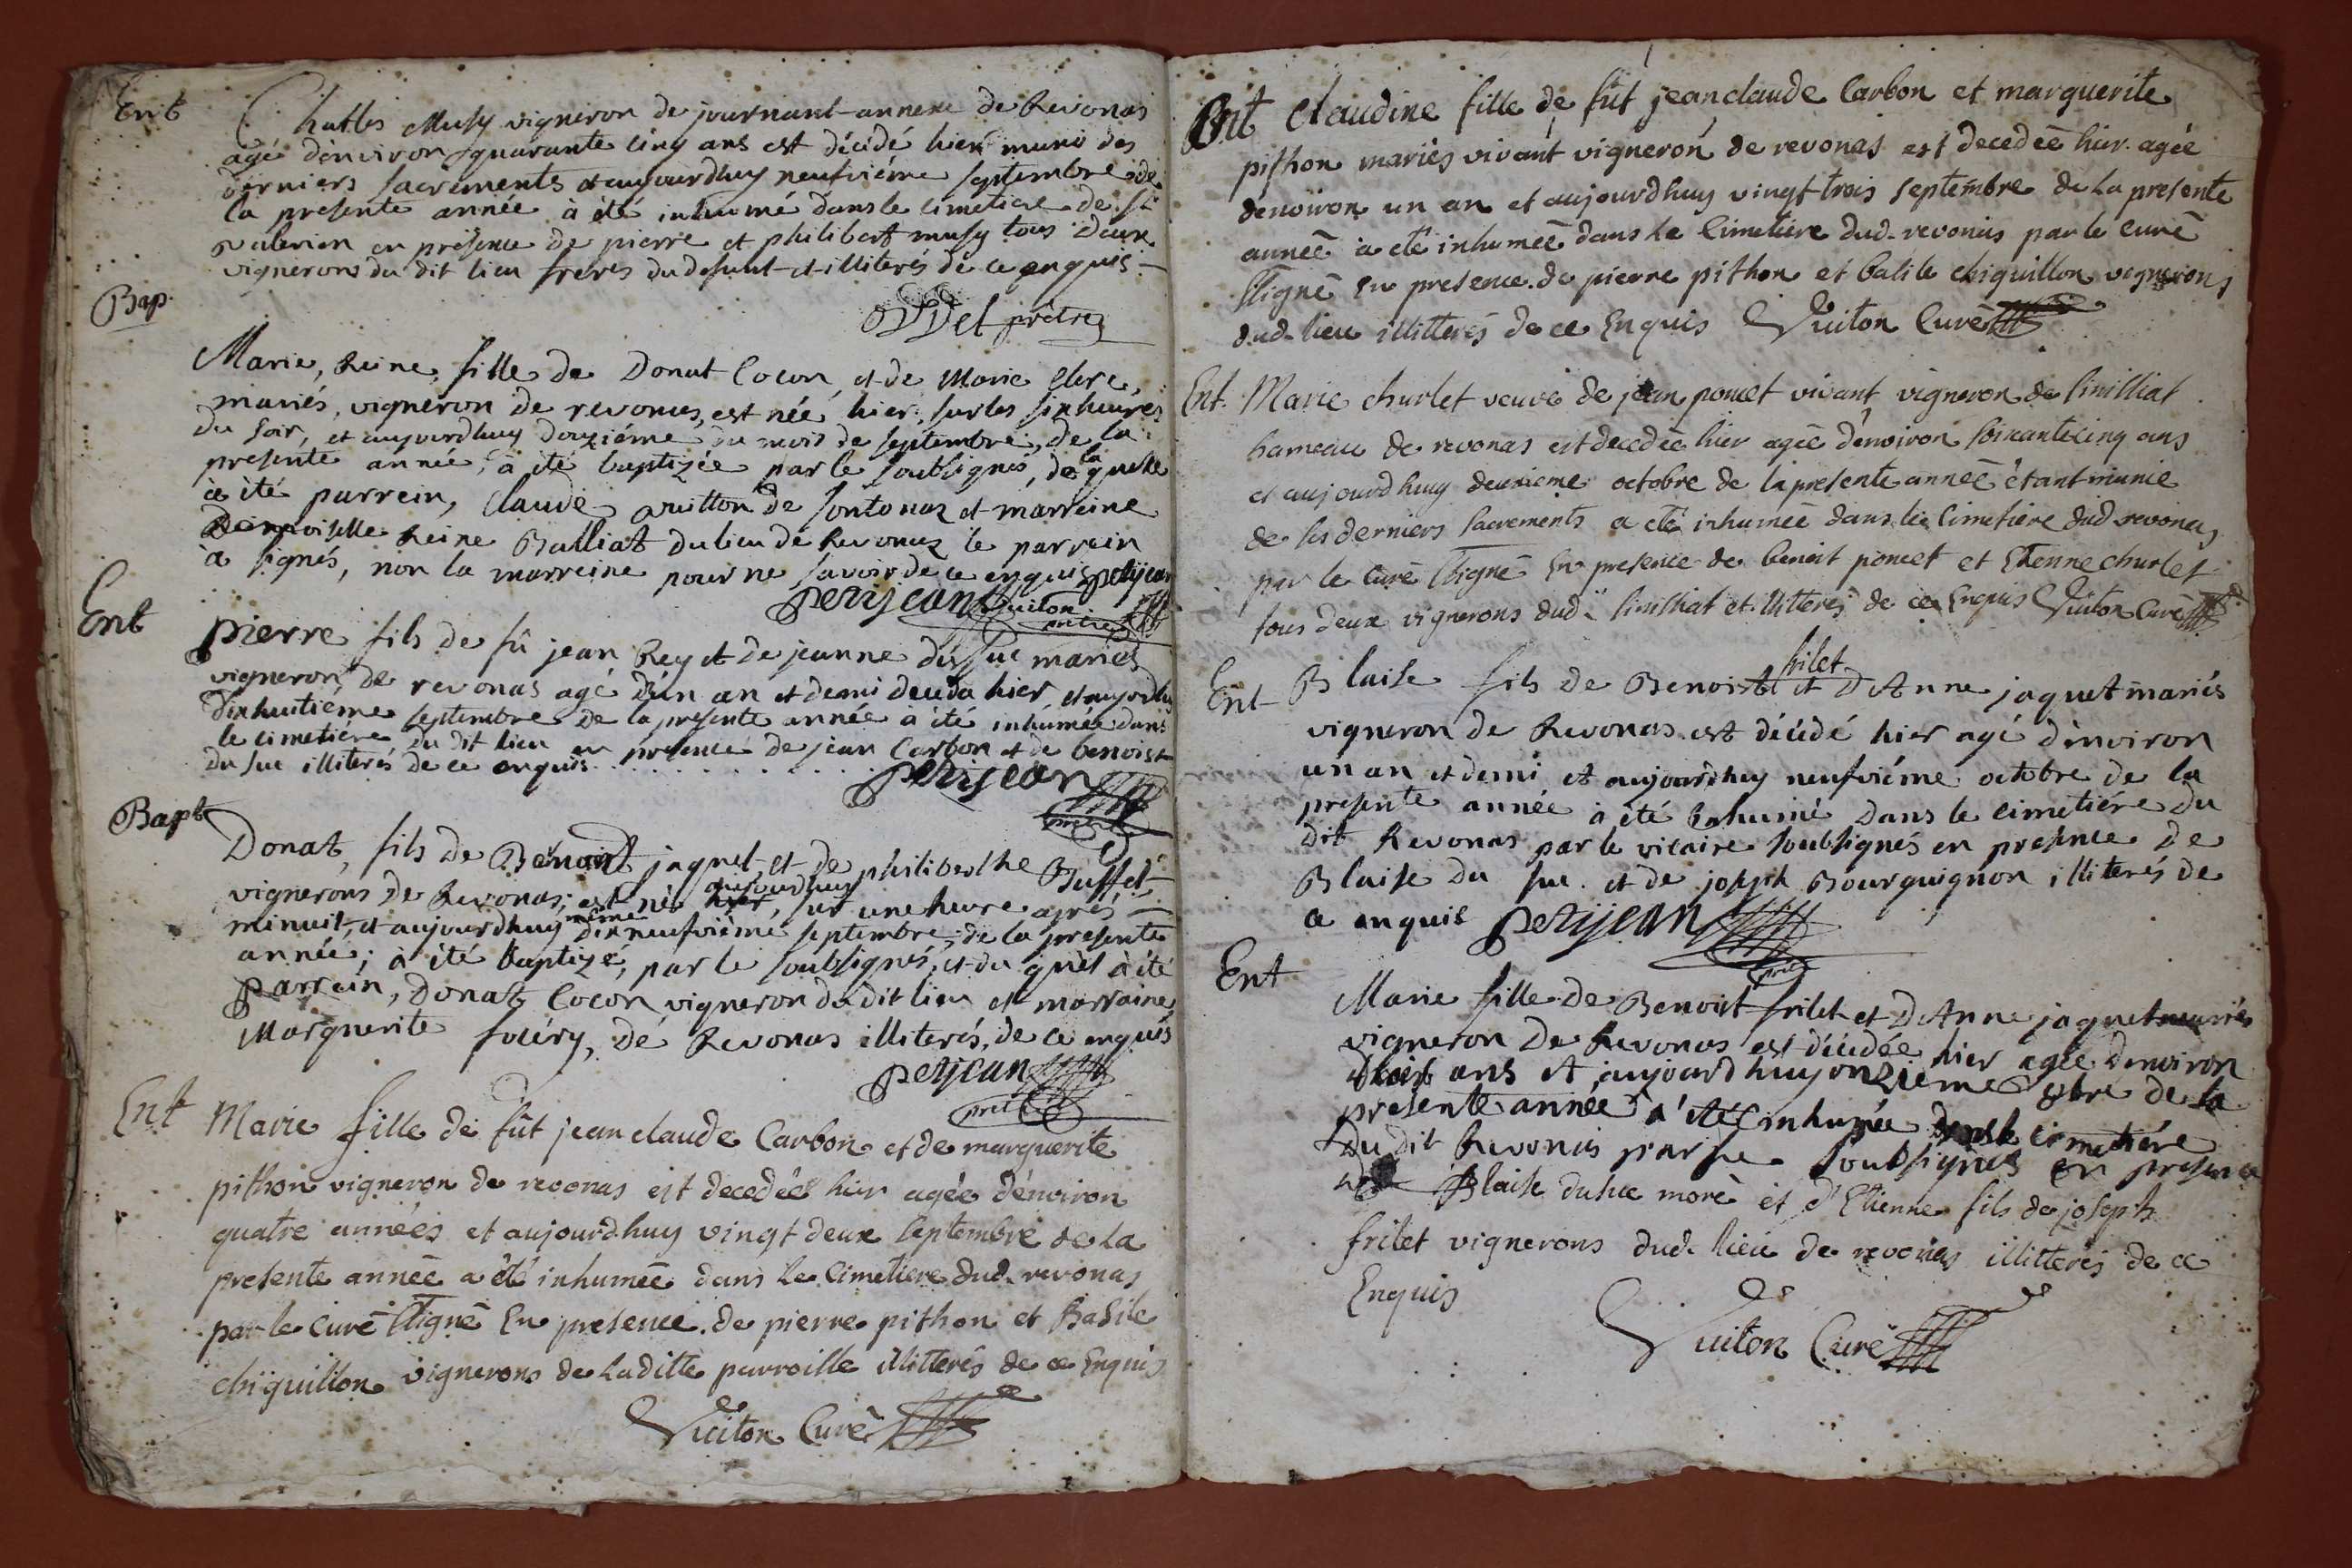 Ent
Charles Musy vigneron de journant-annexe de Revonas
agé d'environ quarante cinq ans est décédé hier muni des
derniers sacrements et aujourdhuy neufviéme septembre de
la presente année à été inhumé dans le cimetiere de St
valerien en présence de pierre et philibert musy tous deux
vignerons du dit lieu freres du defunt et illiterés de ce enquis
prêtre
Bap.
Marie, Reine, fille de Donat Cocon et de Marie Clerc
mariés, vigneron de revonas, est née hier, sur les six heures
du soir, et aujourdhuy douziéme du mois de septembre, de la
presente année, à été baptizée par le soubsignés, de laquelle
à été parrein, Claude vuitton de sontonaz et marreine
Demoiselle Reine Balliat du lieu de Revonaz le parrein
à signés, non la marreine pour ne savoir de ce enquis petijean
petijean vuiton prêtre
Ent
pierre fils de fû jean Rey et de jeanne du suc mariés
vigneron, de revonas agé d'un an et demi deceda hier et aujordhy
dixhuitieme septembre de la presente année à été inhumée dans
le cimetiére du dit lieu en presence de jean Carbon et de benoist
du suc illiterés de ce enquis
petijean
prêtre
Bapt
Donat, fils de Benoist jaquet, et de philiberthe Buffet
vignerons de Revonas; est né hier, aujourdhuy sur une heure aprés
minuit, et aujourdhuy même dixneufviéme septembre, de la presente
année; à été baptizé, par le soubsignés, et du quel à été
parrein, Donat Cocon vigneron du dit lieu et marraine
Marguerite foléry, dé Revonas illiterés, de ce enquis
petijean
prêt
Ent
Marie fille de fût jean claude Carbon et de marguerite
pithon vigneron de revonas est decedée hier agée d'environ
quatre années et aujourdhuy vingt deux septembre de la
presente année a été inhumée dans le Cimetiere dud. revonas
par le curé ssigné En presence de pierre pithon et Basile
chiquillon vignerons de laditte parroisse illitterés de ce Enquis
Vuiton Curé
Ent
Claudine fille de fût jean claude Carbon et marguerite
pithon mariés vivant vigneron de revonas est decedée hier agée
d'environ un an et aujourdhuy vingt trois septembre de la presente
année a été inhumée dans le Cimetiere dud. revonas par le curé
ssigné En presence de pierre pithon et basile chiquillon vignerons
dud. lieu illitterés de ce Enquis Vuiton Curé
Ent.
Marie churlet veuve de jean poncet vivant vigneron de simillat
hameau de revonas est decedée hier agée d'environ soixante cinq ans
et aujourdhuy deuxieme octobre de la presente année étant munie
de ses derniers sacrements a été inhumée dans le cimetiere dud. revonas
par le curé ssigné En presence de benoit poncet et Etienne churlet
tous deux vignerons dud. simillat et illitterés de ce Enquis Vuiton Curé
Ent
Blaise fils de Benoist frilet et d'Anne jaquet mariés
vigneron de Revonas est décédé hier agé d'environ
un an et demi et aujourdhuy neufviéme octobre de la
presente année à été inhumé dans le cimetiére du
dit Revonas par le vicaire soubsignés en presence de
Blaise du suc et de joseph Bourguignon illiterés de
ce enquis petijean
prêt
Ent
Marie fille de Benoist frilet et d'Anne jaquet mariés
vigneron de Revonas est décedée hier agée d'environ
trois ans et aujourdhuy onzieme 8bre de la
presente année à été inhumée dans le cimetiére
du dit Revonas par le soubsignés en presence
de Blaise dusuc moré et d'Etienne fils de joseph
frilet vignerons dud. lieu de revonas illitterés de ce
Enquis
Vuiton Curé